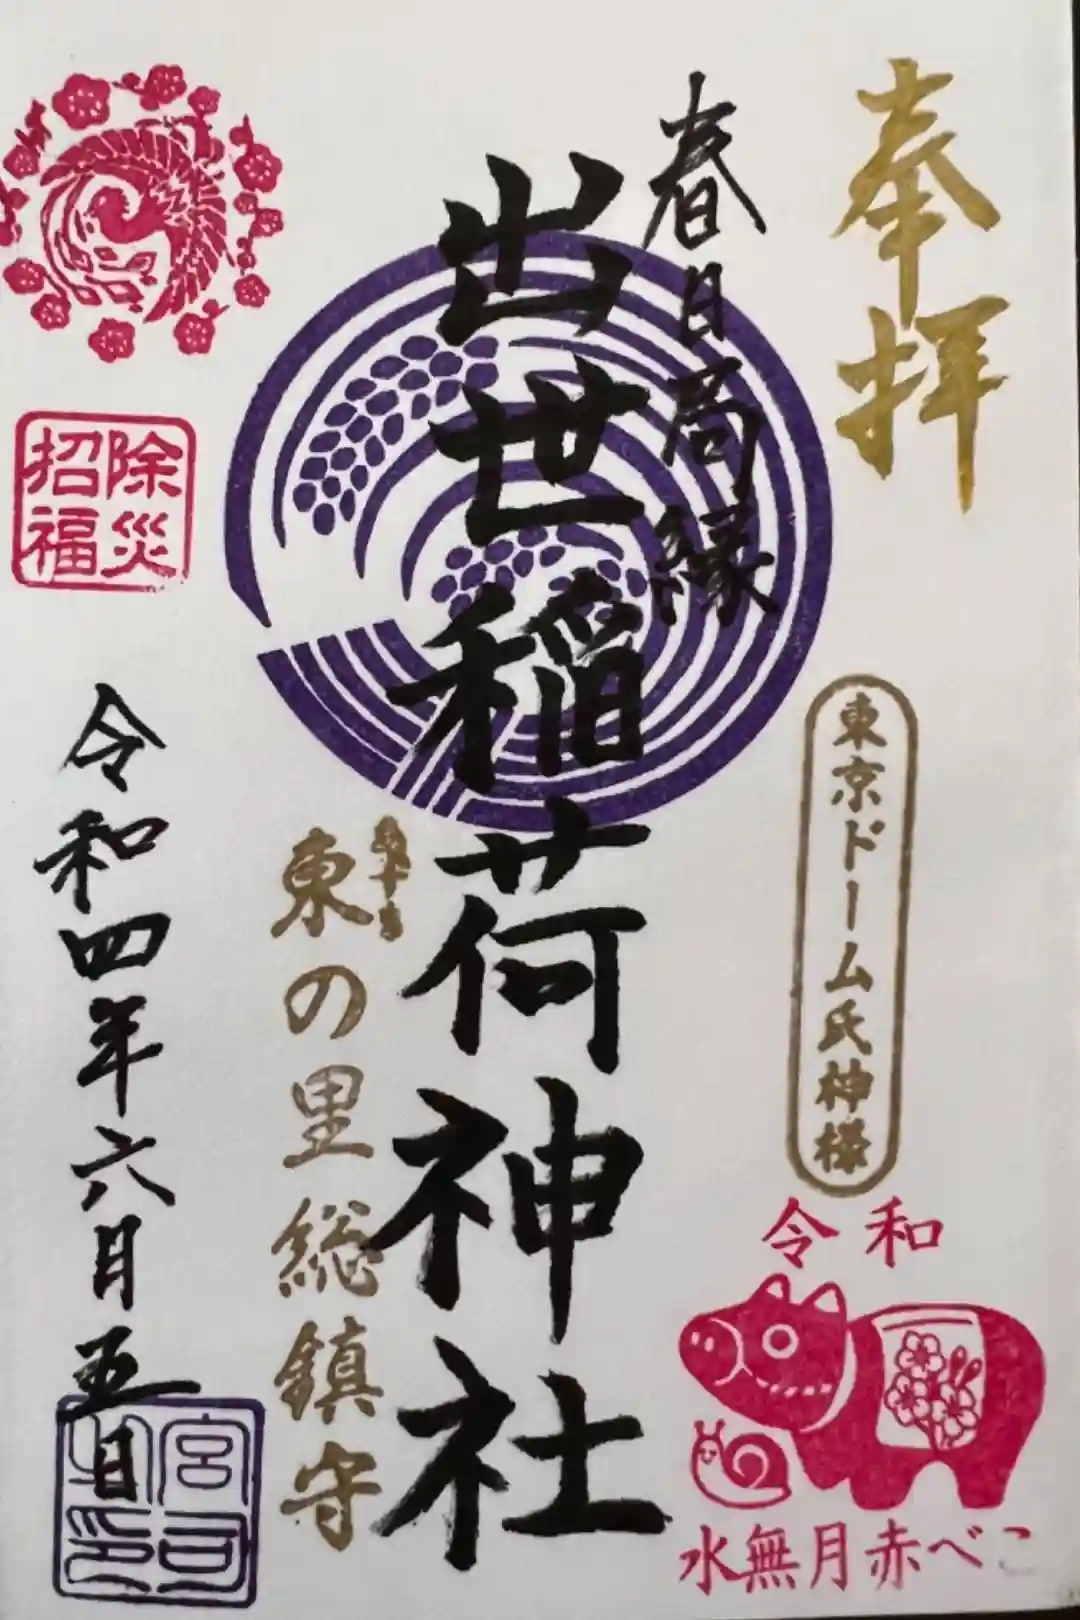 奉拝
東京ドーム氏神様
令和
水無月赤べこ
春日局縁
出世稲荷神社
東の里総鎮守
除災
招福
令和四年六月五日
宮司
之印